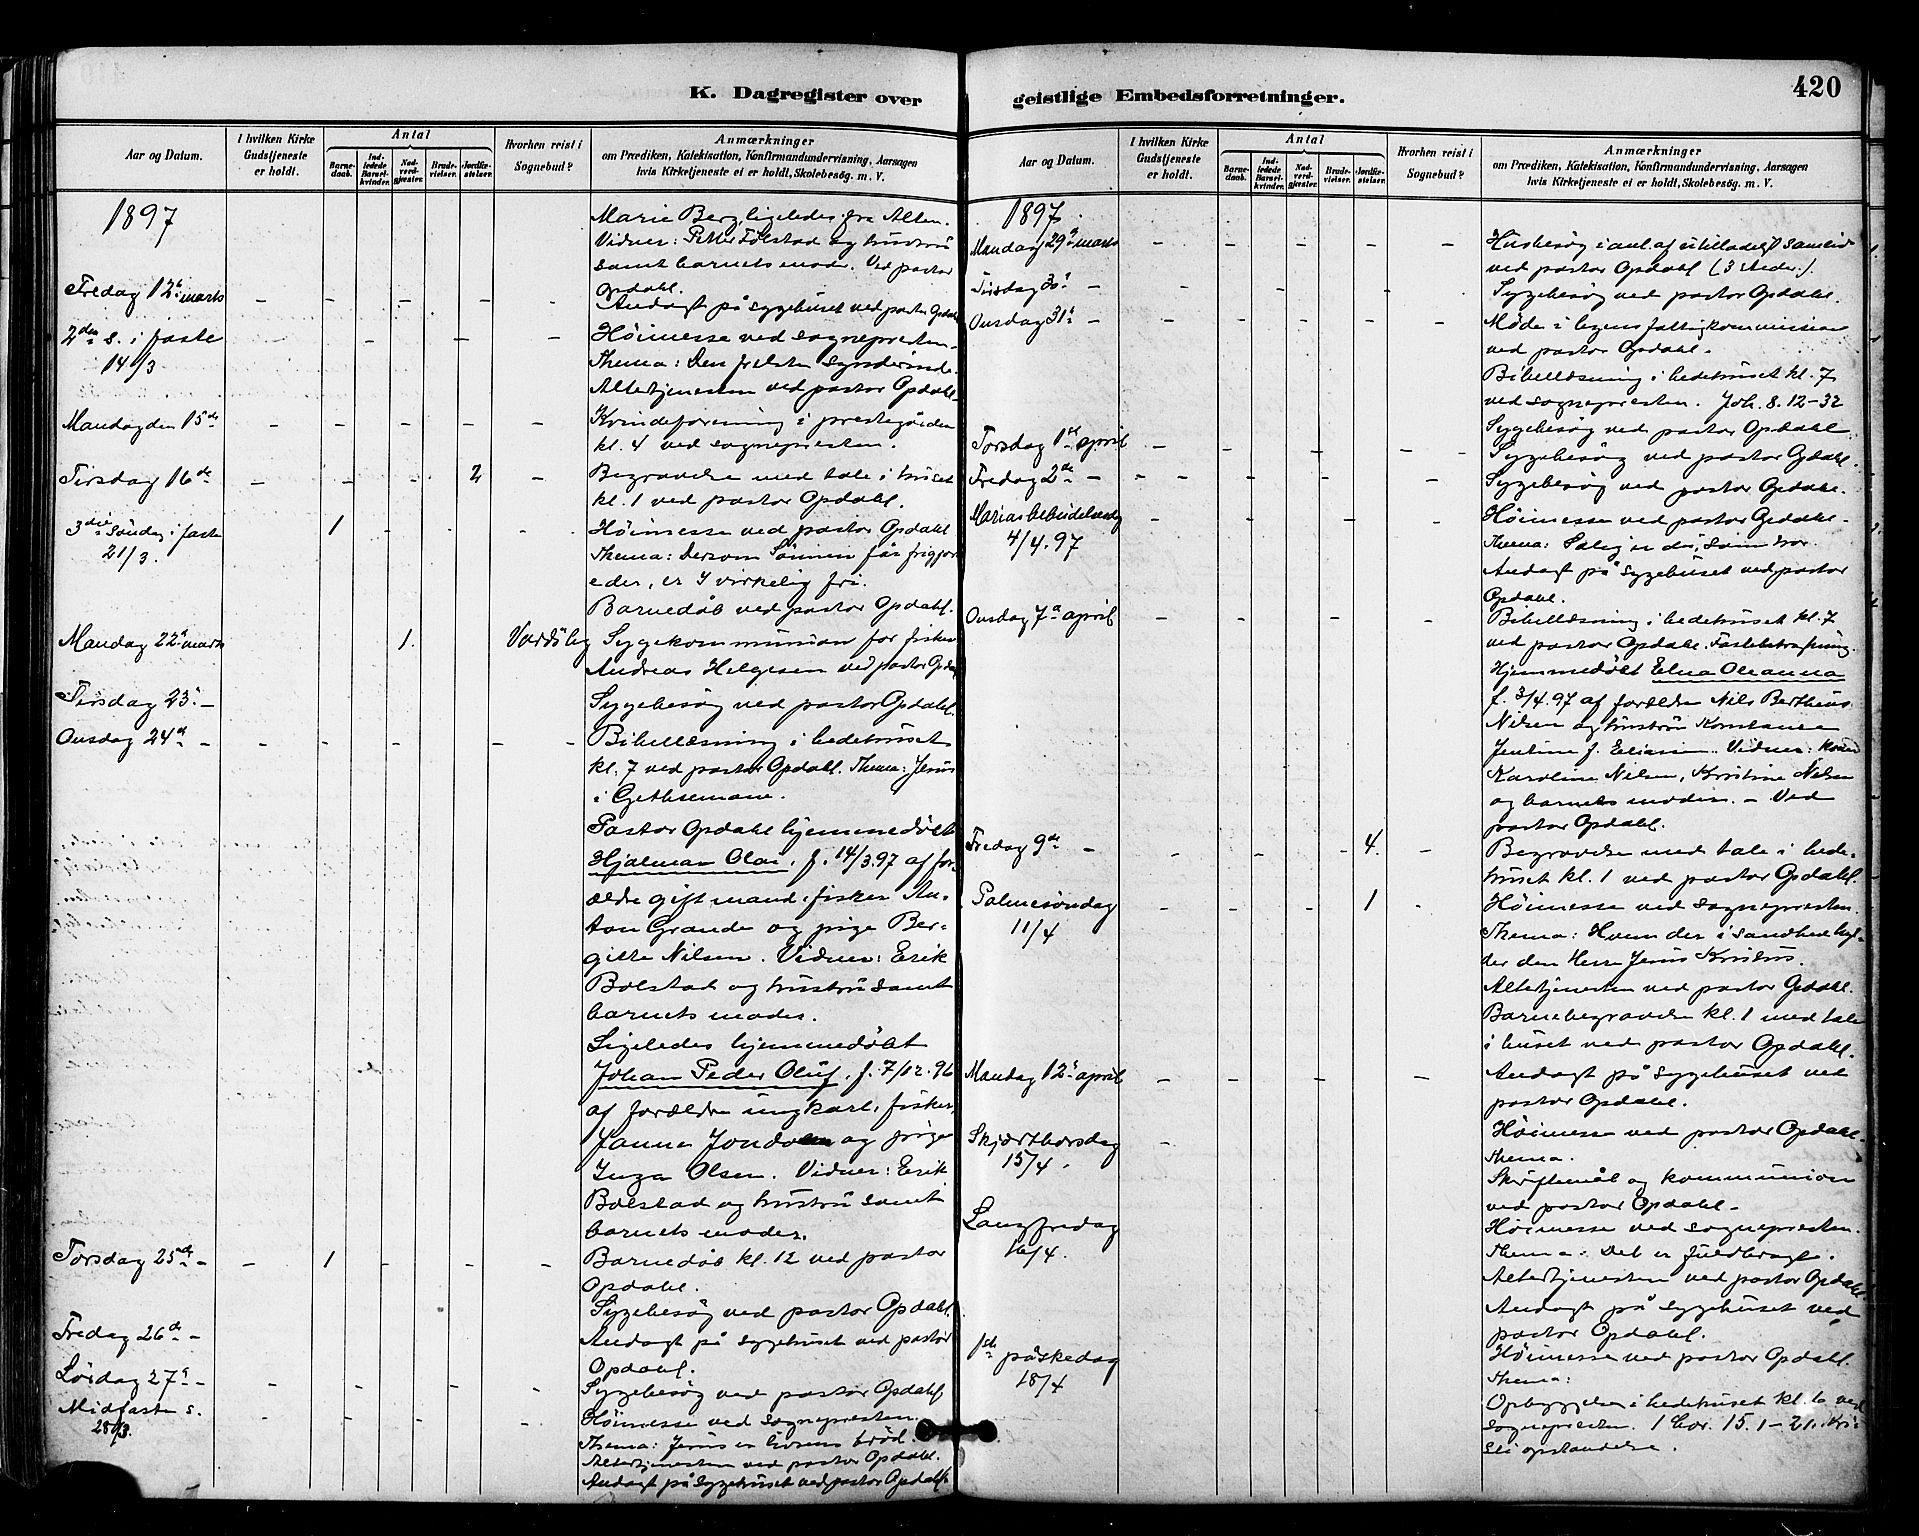 420
K. Dagregister over
geistlige Embedsforretninger.
Aar og Datum.
I hvilken Kirke Gudstjeneste er holdt.
Antal
Barnedaab.
Indledede Barselkvinder.
Nadverdgjæster.
Brudevielser.
Jordfæstelser.
Hvorhen reist i Sognebud?
Anmærkninger
om Prædiken, Katekisation, Konfirmandundervisning, Aarsagen
hvis Kirketjeneste ei er holdt, Skolebesøg. m. V.
1897
Marie Berg ligeledes fra Alten.
Vidner: Petter Følstad og hustru
samt barnets moder. Ved pastor
Opdahl.
Fredag 12te marts - - - - - -
Andagt på sygehuset ved pastor Opdahl
2den s. i faste
14/3
Höimesse ved sognepresten.
Thema: Den frelste synderinde.
Altertjenesten ved pastor Opdahl.
Mandag den 15de - - - - - -
Kvindeforening i prestegården
kl. 4 ved sognepresten.
Tirsdag 16de - - - - 2 -
Begravelse med tale i huset
kl. 1 ved pastor Opdahl.
3die söndag i faste
21/3.
1
Höimesse ved pastor Opdahl
Thema: Dersom Sönnen får frigjort
eder, er I virkelig fri.
Barnedåb ved pastor Opdahl.
Mandag 22de marts
1.
Vardöby
Sygekommunion for fisker
Andreas Helgesen ved pastor Opdahl
Tirsdag 23de -
Sygebesög ved pastor Opdahl.
Onsdag 24de - - - - - -
Bibellæsning i bedehuset
kl. 7 ved pastor Opdahl. Thema: Jesus
i Gethsemane.
Pastor Opdahl hjemmedöbt
Hjalmar Olai, f. 14/3.97 af for-
ældre gift mand, fisker An-
ton Grande og pige Ber-
gitte Nilsen. Vidner: Erik
Bolstad og hustru samt
barnets moder.
Ligeledes hjemmedöbt
Johan Peder Oluf, f. 7/12.96
af forældre ungkarl, fisker,
og pige
Inga Olsen. Vidner: Erik
Bolstad og hustru samt
barnets moder.
Torsdag 25de - - 1 - - -
Barnedåb kl. 12 ved pastor
Opdahl.
Sygebesög ved pastor Opdahl.
Fredag 26de -
Andagt på sygehuset ved pastor
Opdahl.
Lördag 27de - - - - - -
Sygebesög ved pastor Opdahl
Midfaste s.
28/3.
Höimesse ved sognepresten.
Thema: Jesus er livsens bröd.
Altertjenesten ved pastor Opdahl.
Andagt på sygehuset ved pastor Opdahl
Aar og Datum.
I hvilken Kirke Gudstjeneste er holdt.
Antal
Barnedaab.
Indledede Barselkvinder.
Nadverdgjæster.
Brudevielser.
Jordfæstelser.
Hvorhen reist i Sognebud?
Anmærkninger
om Prædiken, Katekisation, Konfirmandundervisning, Aarsagen
hvis Kirketjeneste ei er holdt, Skolebesøg. m. V.
1897.
Mandag 29de marts - - - - - -
Husbesög i anl. af utilladeligt samliv
ved pastor Opdahl (3 steder).
Tirsdag 30te -
Sygebesög ved pastor Opdahl.
Onsdag 31te - - - - - -
Möde i fattigkommission
ved pastor Opdahl.
Bibellæsning i bedehuset kl. 7
ved sognepresten. Joh. 8. 12-32
Sygebesög ved pastor Opdahl
Torsdag 1ste april - - - - -
Sygebesög ved pastor Opdahl.
Fredag 2den - - - - - -
Sygebesög ved pastor Opdahl.
Mariæ bebudelsesdag
4/4.97
Höimesse ved pastor Opdahl.
Thema: Salig er du, som tror.
Andagt på sygehuset ved pastor
Opdahl.
Onsdag 7de april - - - - - -
Bibellæsning i bedehuset kl. 7
ved pastor Opdahl. Fastebetragtning.
Hjemmedöbt Elna Oleanna
f. 3/4.97 af forældre Nils Bertheus
Nilsen og hustru Konstance
Jentine f. Vidner: kone
Karoline Nilsen, Kristine Nilsen
og barnets moder. - Ved
pastor Opdahl.
Fredag 9de - - - - - 4. -
Begravelse med tale i bede-
huset kl. 1 ved pastor Opdahl.
Palmesöndag
11/4
1
Höimesse ved sognepresten.
Thema: Hvem der i sandhed hyl-
der den Herre Jesus Kristus.
Altertjenesten ved pastor Opdahl.
Barnebegravelse kl. 1 med tale
i huset ved pastor Opdahl.
Mandag 12te april - - - - - -
Andagt på sygehuset ved
pastor Opdahl.
Skjærthorsdag
15/4.
Höimesse ved pastor Opdahl.
Thema.
Skriftemål og kommunion
ved pastor Opdahl.
Langfredag
16/4.
Höimesse ved sognepresten.
Thema: Det er fuldbragt.
Altertjenesten ved pastor Opdahl.
Andagt på sygehuset ved
pastor Opdahl.
1ste påskedag
18/4
Höimesse ved pastor Opdahl.
Thema:
Opbyggelse i bedehuset kl. 6 ved
sognepresten. 1 Cor. 15. 1-21. Kri-
sti opstandelse.